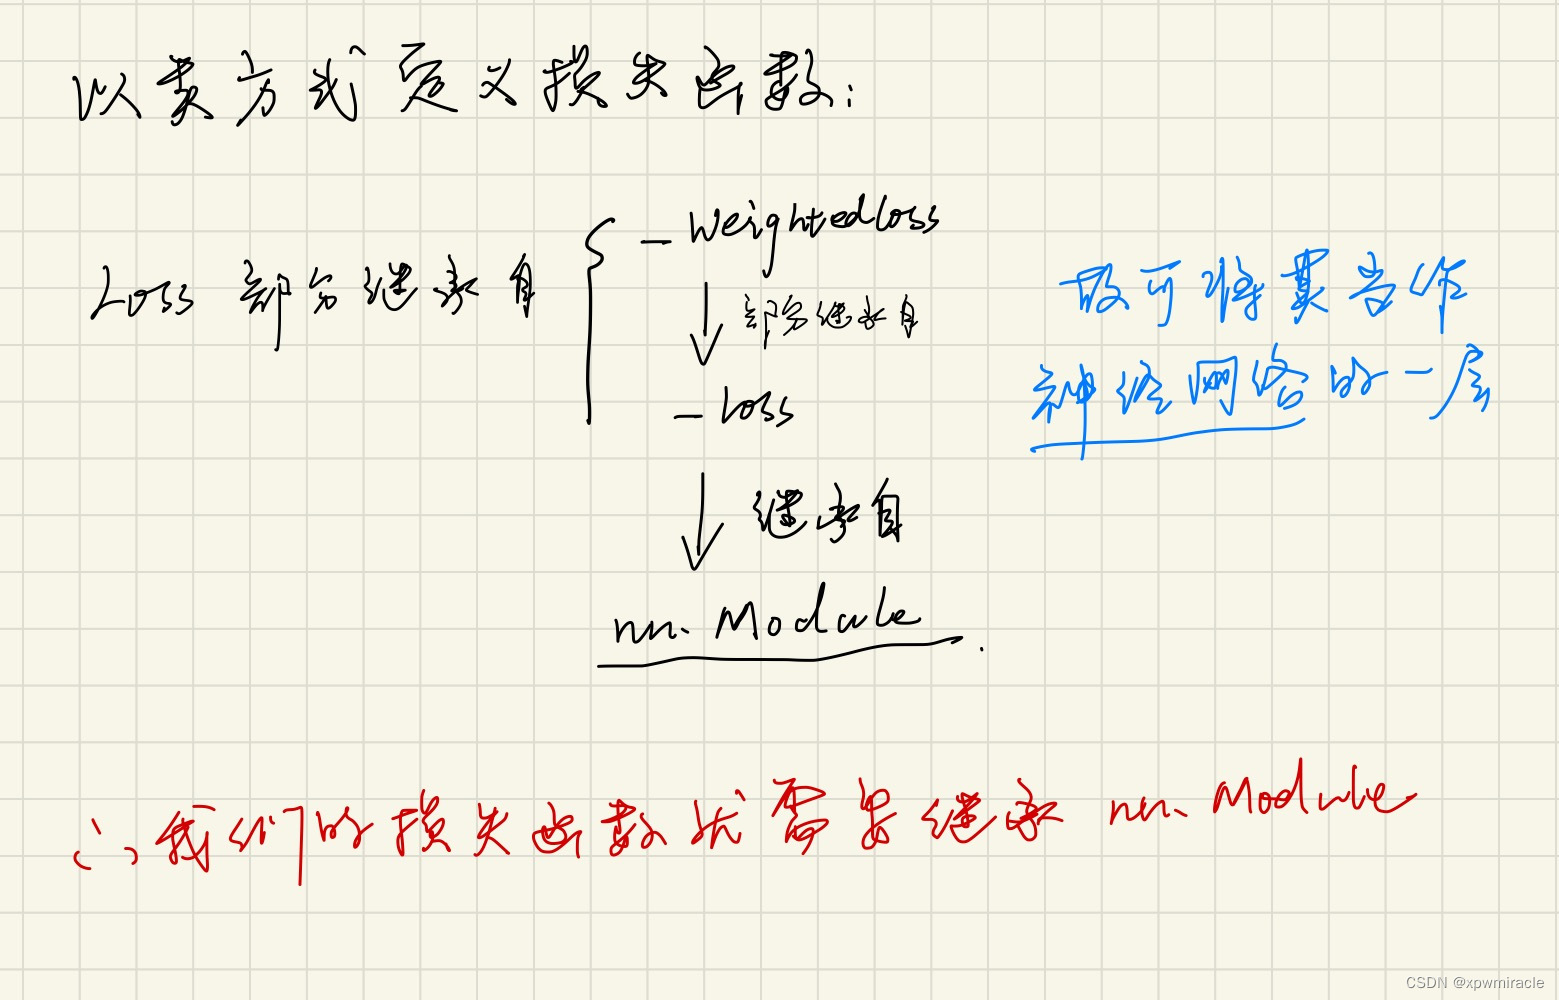 以类方式定义损失函数:
Loss 部分继承自
- Weightedloss
部分继承自
- loss
继承自
nn.Module.
故可将其当作
神经网络的一层
∴我们的损失函数就需要继承 nn.Module
CSDN @xpwmiracle